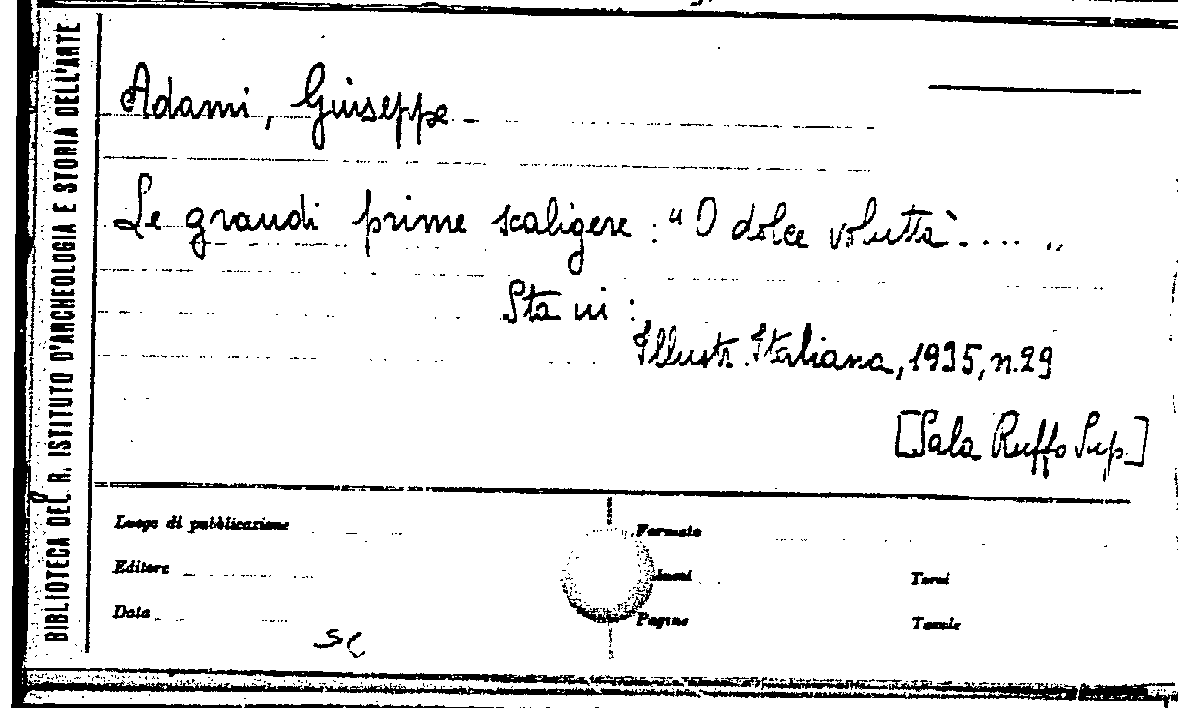 BIBLIOTECA DEL R. ISTITUTO D'ARCHEOLOGIA E STORIA DELL'ARTE
Adami, Giuseppe
Le grandi prime scaligere : "O dolce voluttà.... „
Sta in :
Illustr. Italiana, 1935, n. 29
[Sala Ruffo Sup.]
Luogo di pubblicazione
Formato
Editore
Tomi
Data
Pagine
Tavole